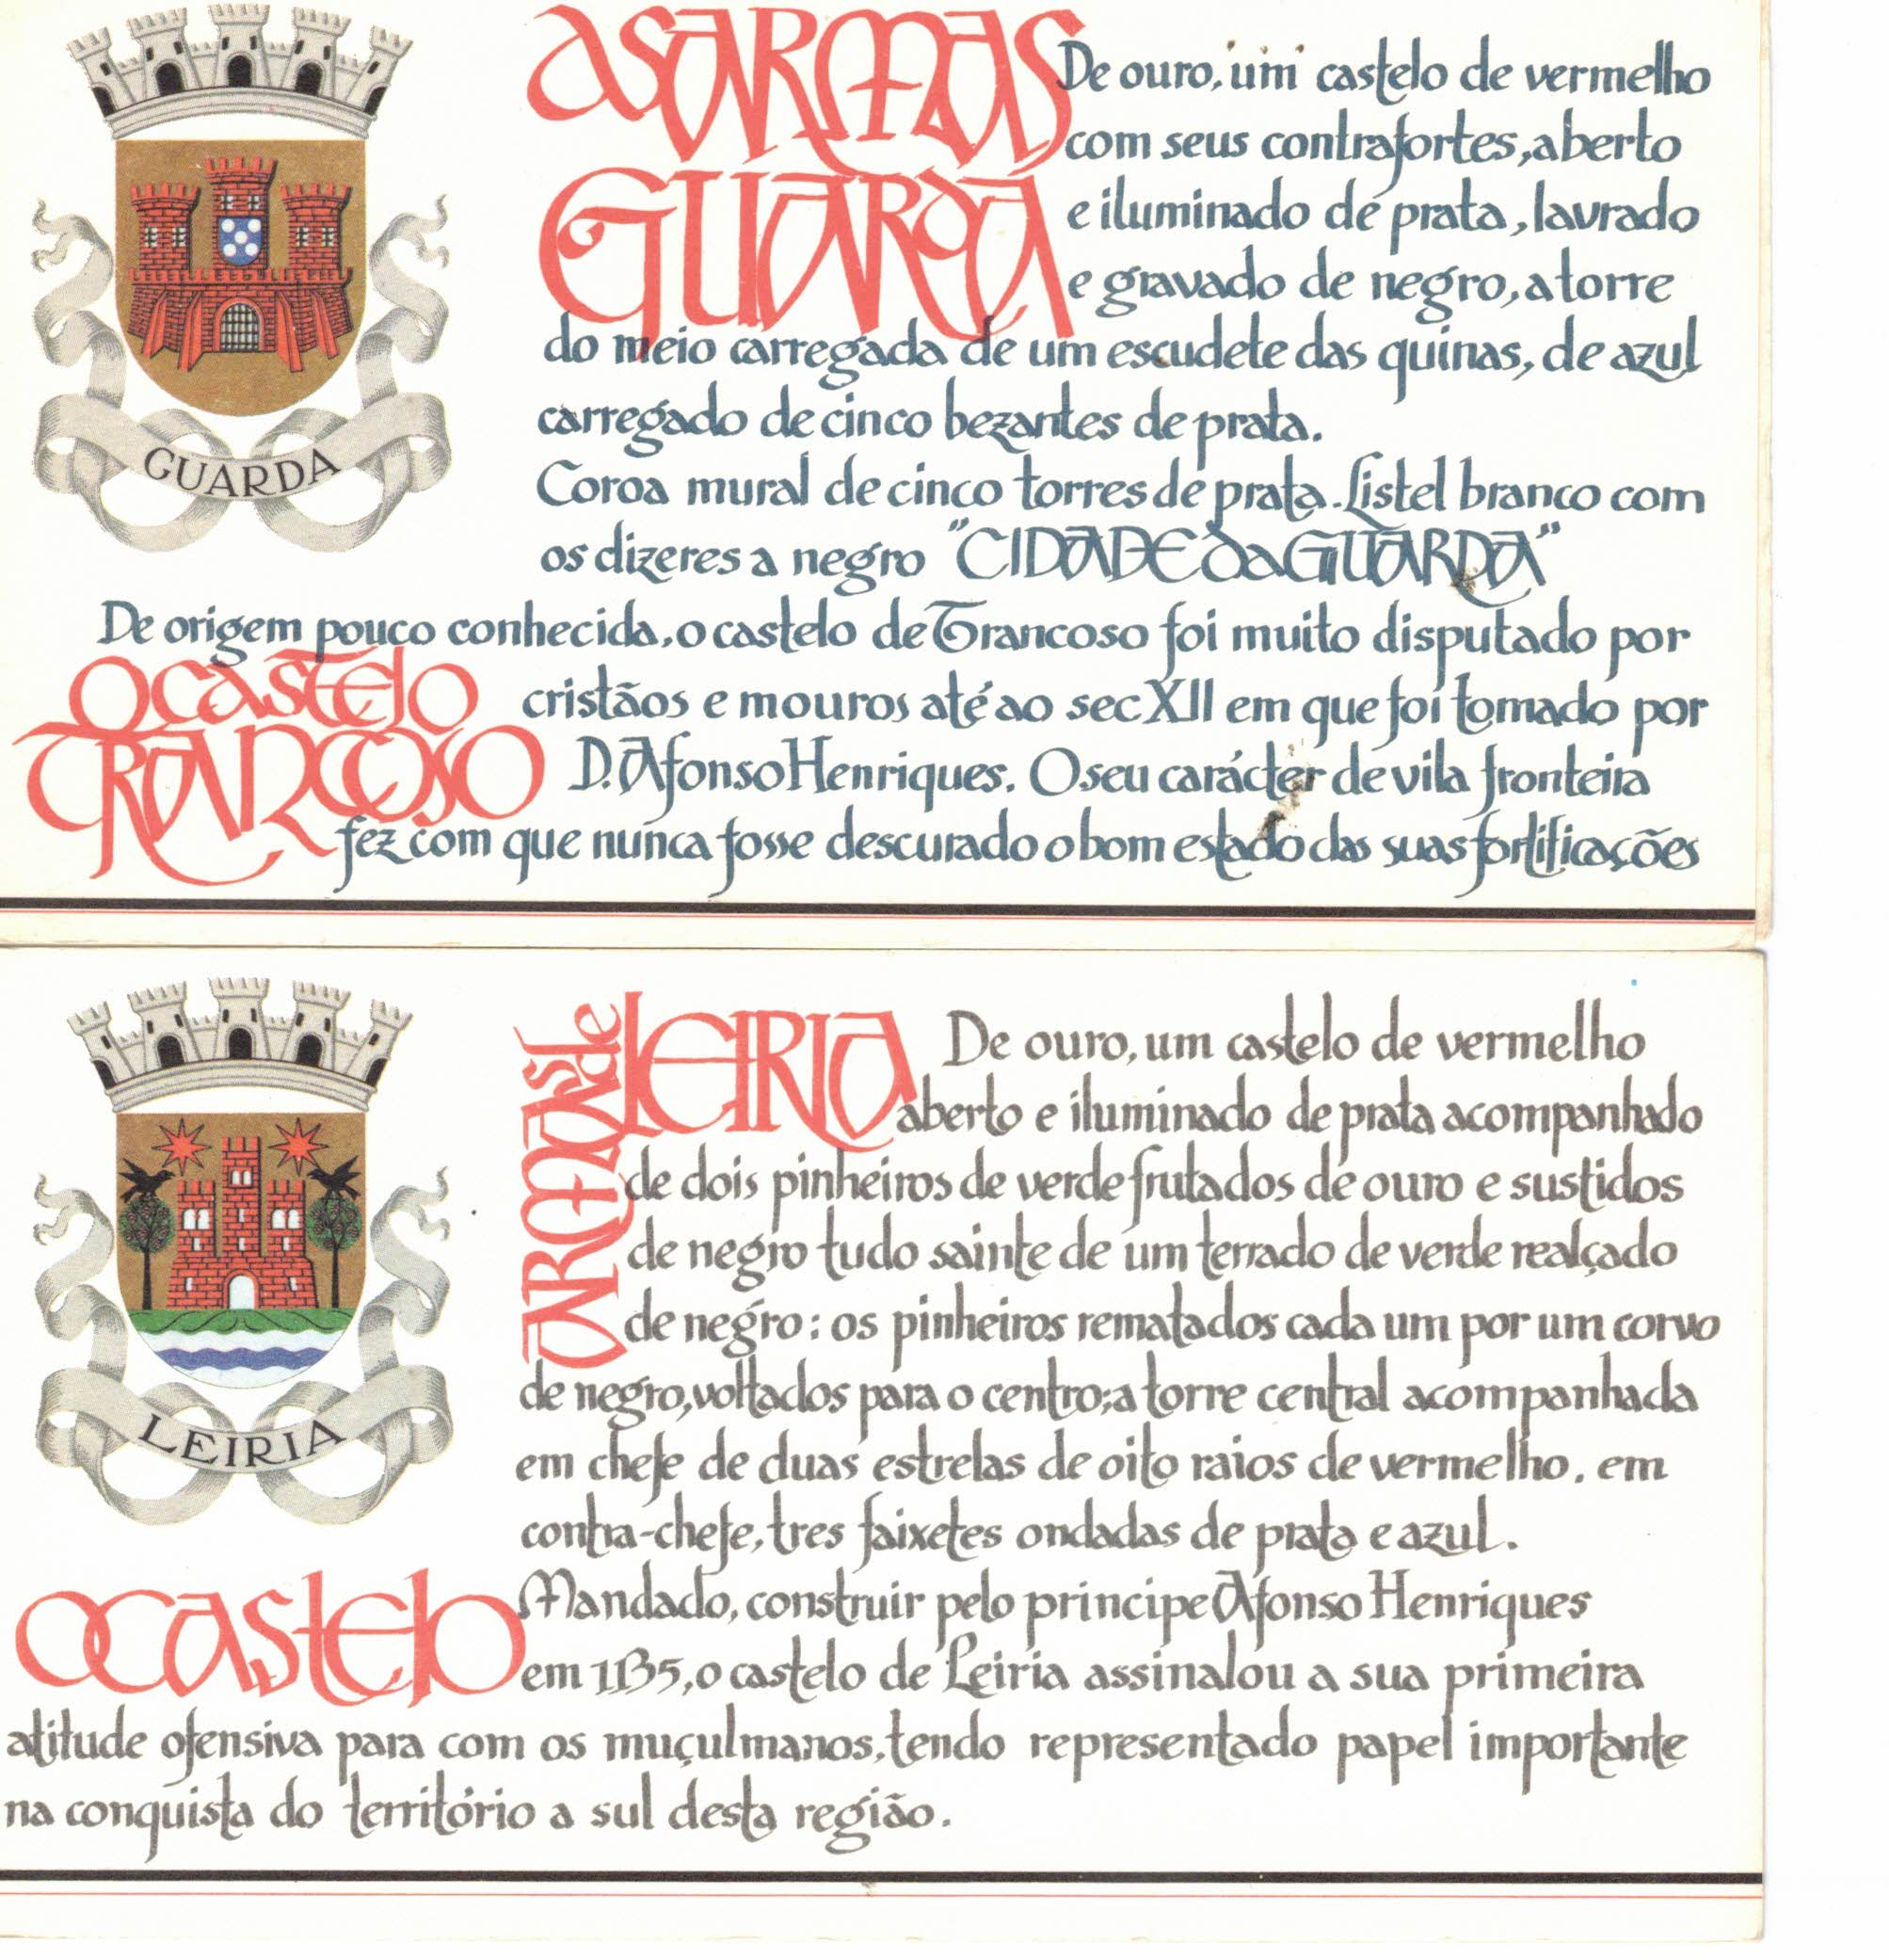 GUARDA
AS ARMAS
GUARDA
De ouro, um castelo de vermelho
com seus contrafortes, aberto
e iluminado de prata, lavrado
e gravado de negro, a torre
do meio carregada de um escudete das quinas, de azul
carregado de cinco bezantes de prata.
Coroa mural de cinco torres de prata. Listel branco com
os dizeres a negro "CIDADE da GUARDA"
De origem pouco conhecida, o castelo de Trancoso foi muito disputado por
O CASTELO
TRANCOSO
cristãos e mouros até ao sec XII em que foi tomado por
D. Afonso Henriques. O seu carácter de vila fronteira
fez com que nunca fosse descurado o bom estado das suas fortificações
LEIRIA
ARMAS de
LEIRIA
De ouro, um castelo de vermelho
aberto e iluminado de prata acompanhado
de dois pinheiros de verde frutados de ouro e sustidos
de negro tudo sainte de um terrado de verde realçado
de negro: os pinheiros rematados cada um por um corvo
de negro, voltados para o centro; a torre central acompanhada
em chefe de duas estrelas de oito raios de vermelho. em
contra-chefe, tres faixetes ondadas de prata e azul.
O CASTELO
Mandado, construir pelo principe Afonso Henriques
em 1135, o castelo de Leiria assinalou a sua primeira
atitude ofensiva para com os muçulmanos, tendo representado papel importante
na conquista do território a sul desta região.